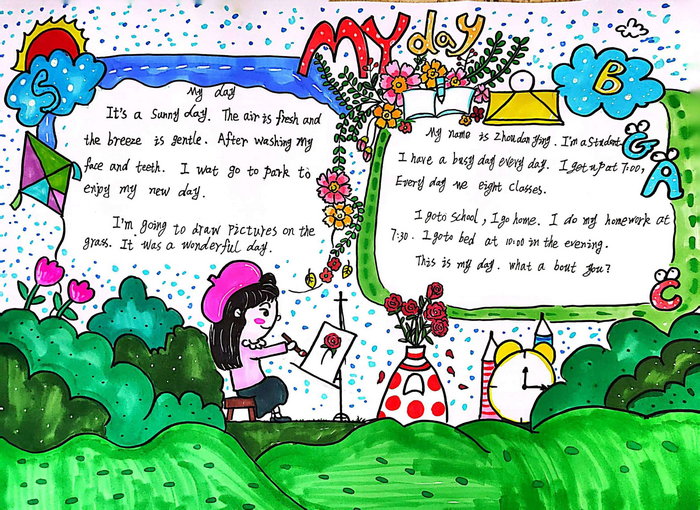 My day
S
My day
It's a Sunny day. The air is fresh and
the breeze is gentle. After washing my
face and teeth. I wat go to park to
enjoy my new day.
I'm going to draw pictures on the
grass. It was a wonderful day.
B
G
A
C
My name is Zhoudan Ying. I'm a student.
I have a busy day every day. I get up at 7:00,
Every day we eight classes.
I goto school, I go home. I do my homework at
7:30. I goto bed at 10:00 in the evening.
This is my day. what a bout you?